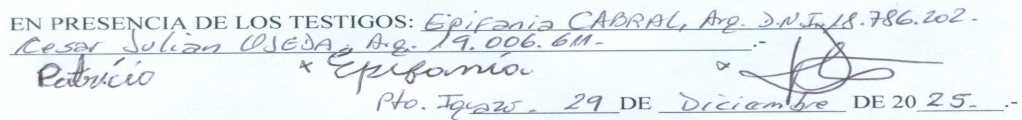 EN PRESENCIA DE LOS TESTIGOS: Epifania CABRAL, Arg. D.N.I. 18.786.202.-
Cesar Julian OJEDA, Arg. 19.006.611- .-
Patricio x Epifanía x
Pto. Iguazú. 29 DE Diciembre DE 20 25. .-